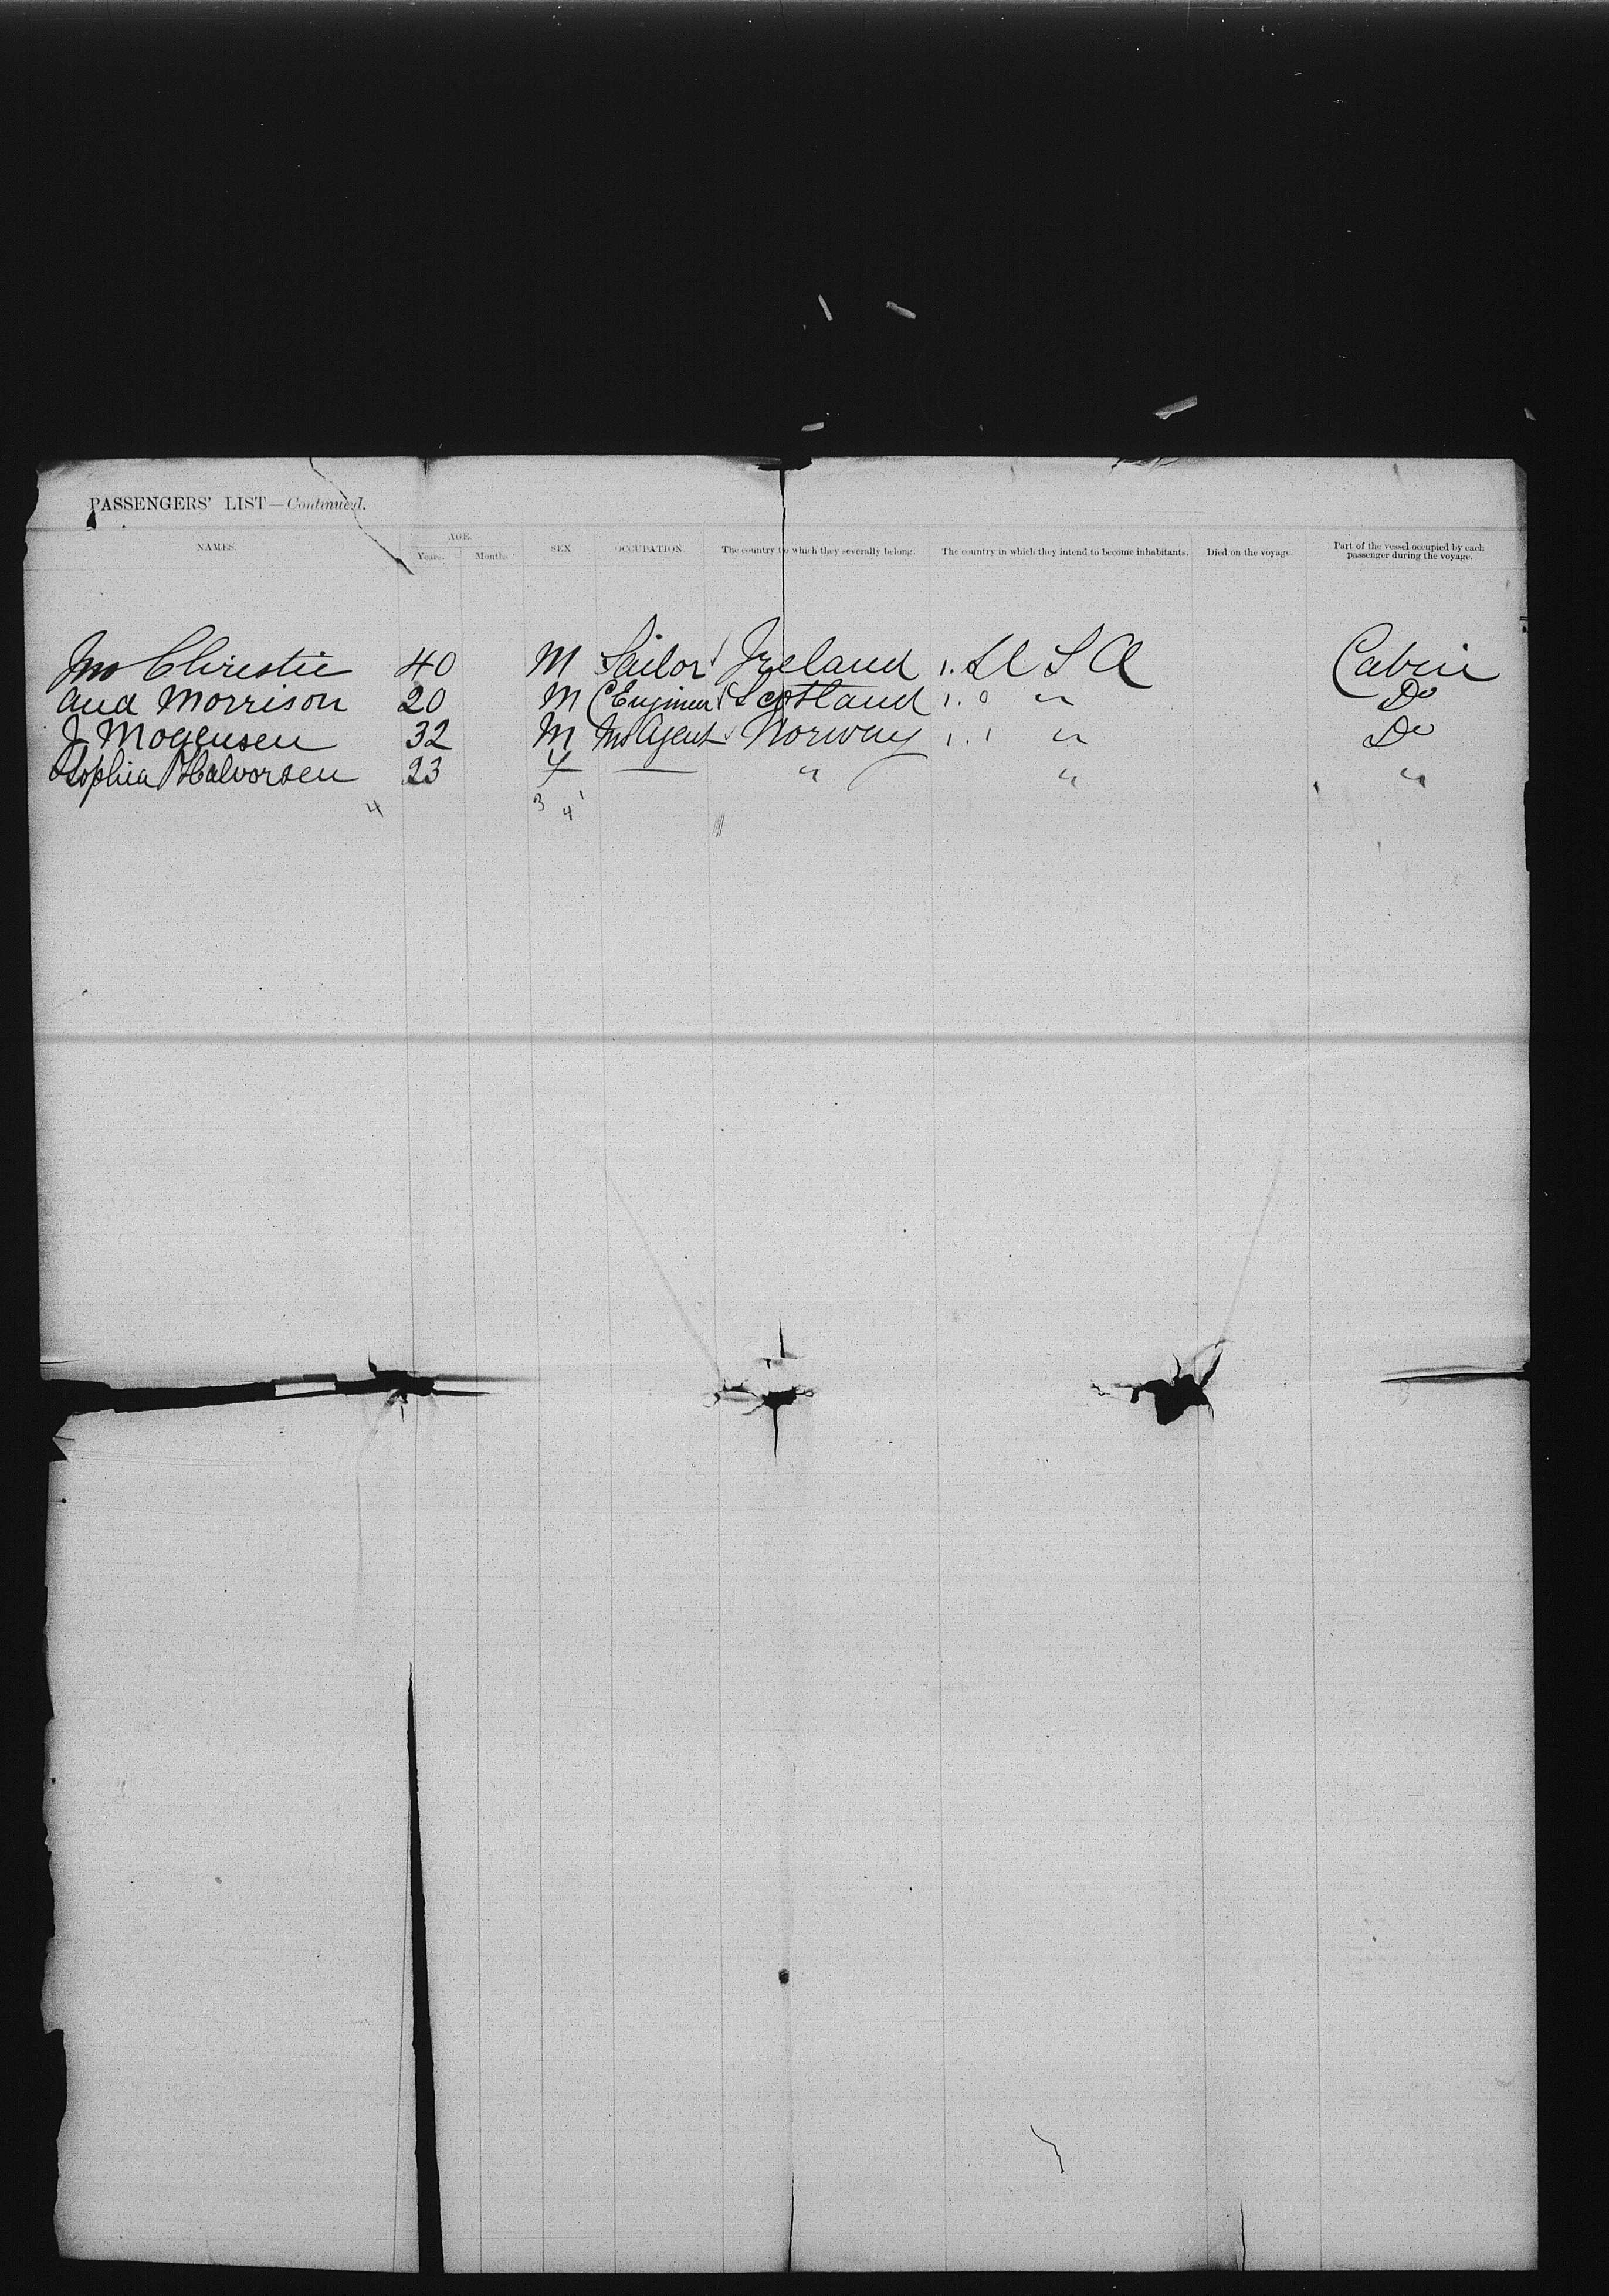 PASSENGERS' LIST—Continued.
NAMES. AGE. Years. Months. SEX. OCCUPATION. The country to which they severally belong. The country in which they intend to become inhabitants. Died on the voyage. Part of the vessel occupied by each passenger during the voyage.
Jno Christie 40 M Sailor Ireland U S A Cabin
And Morrison 20 M Engineer Scotland " Do
J Mogensen 32 M Agent Norway " Do
Sophia Halvorsen 23 F — " " "
4 3 4